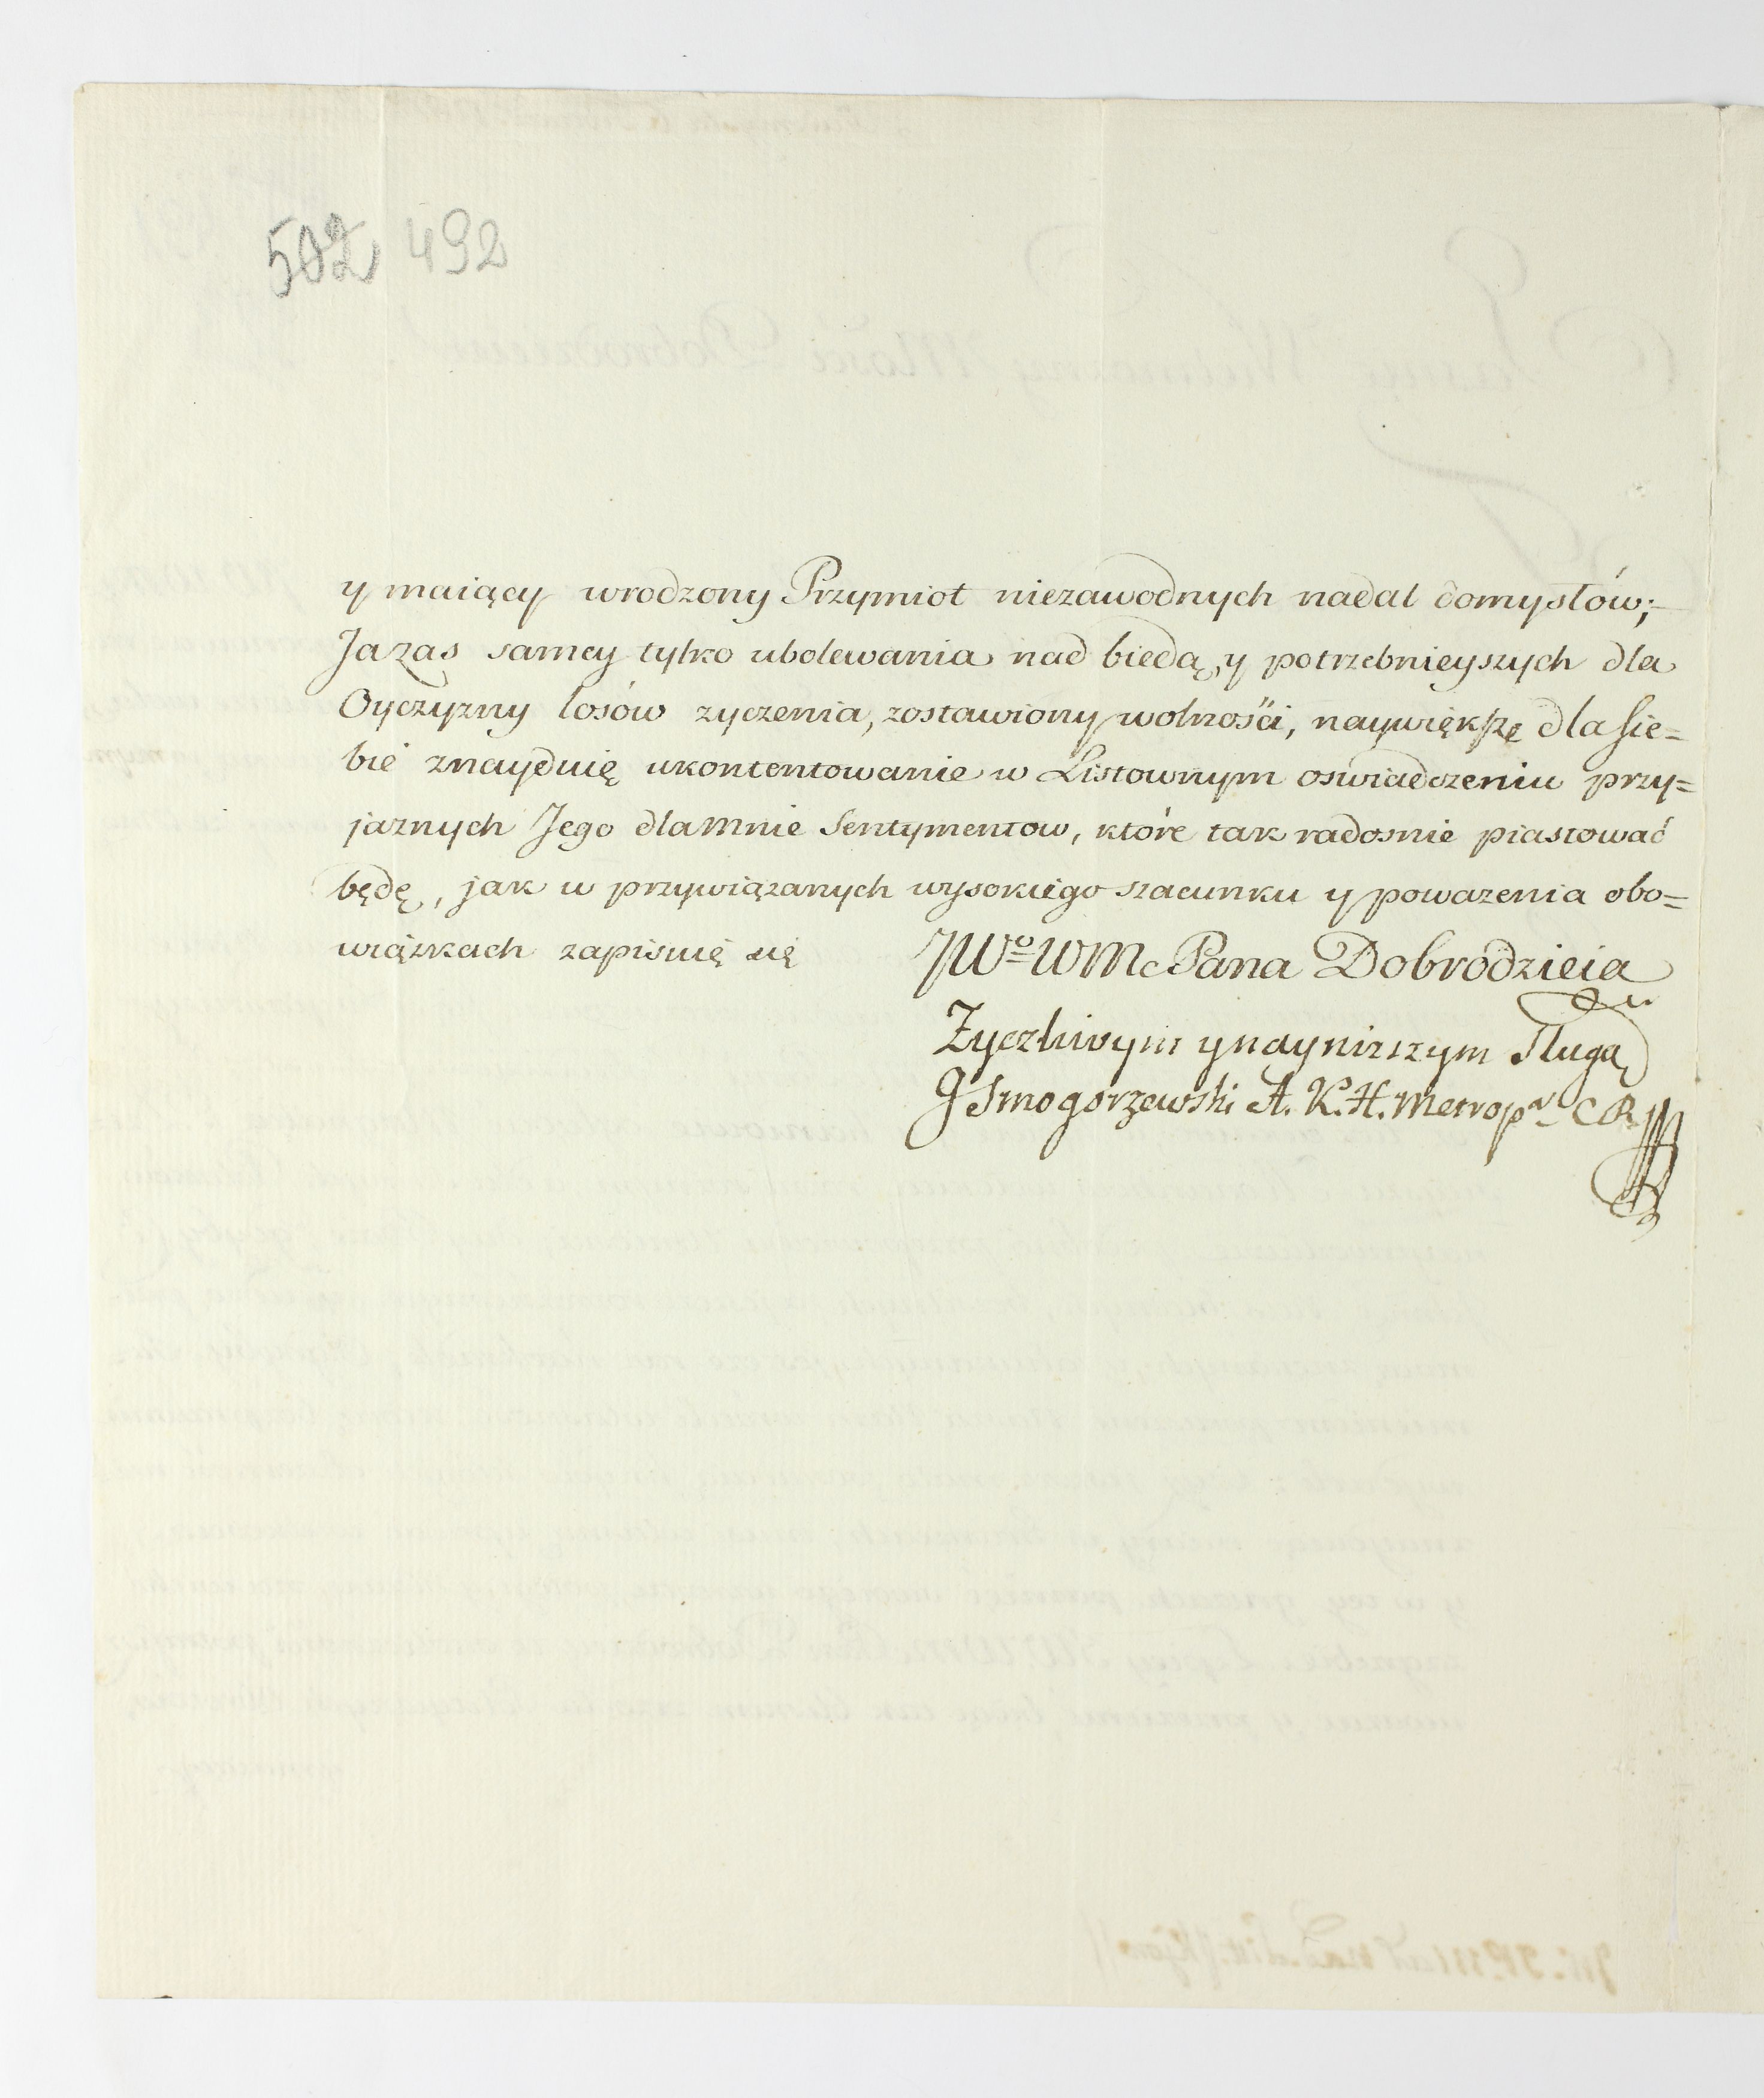 502 492
y maiący wrodzony Przymiot niezawodnych nadal domysłów;
Ja zas samey tylko ubolewania nad biedą, y potrzebnieyszych dla
Oyczyzny losów zyczenia, zostawiony wolności, naywiększe dla sie=
bie znayduię ukontentowanie w Listownym oswiadczeniu przy=
jaznych Jego dla mnie Sentymentow, które tak radosnie piastować
będę, jak w przywiązanych wysokiego szacunku y powazenia obo=
wiązkach zapisuię się JWo WMc Pana Dobrodzieia
Zyczliwym y nayniższym Sługą
J Smogorzewski A. K. H. Metrop CR